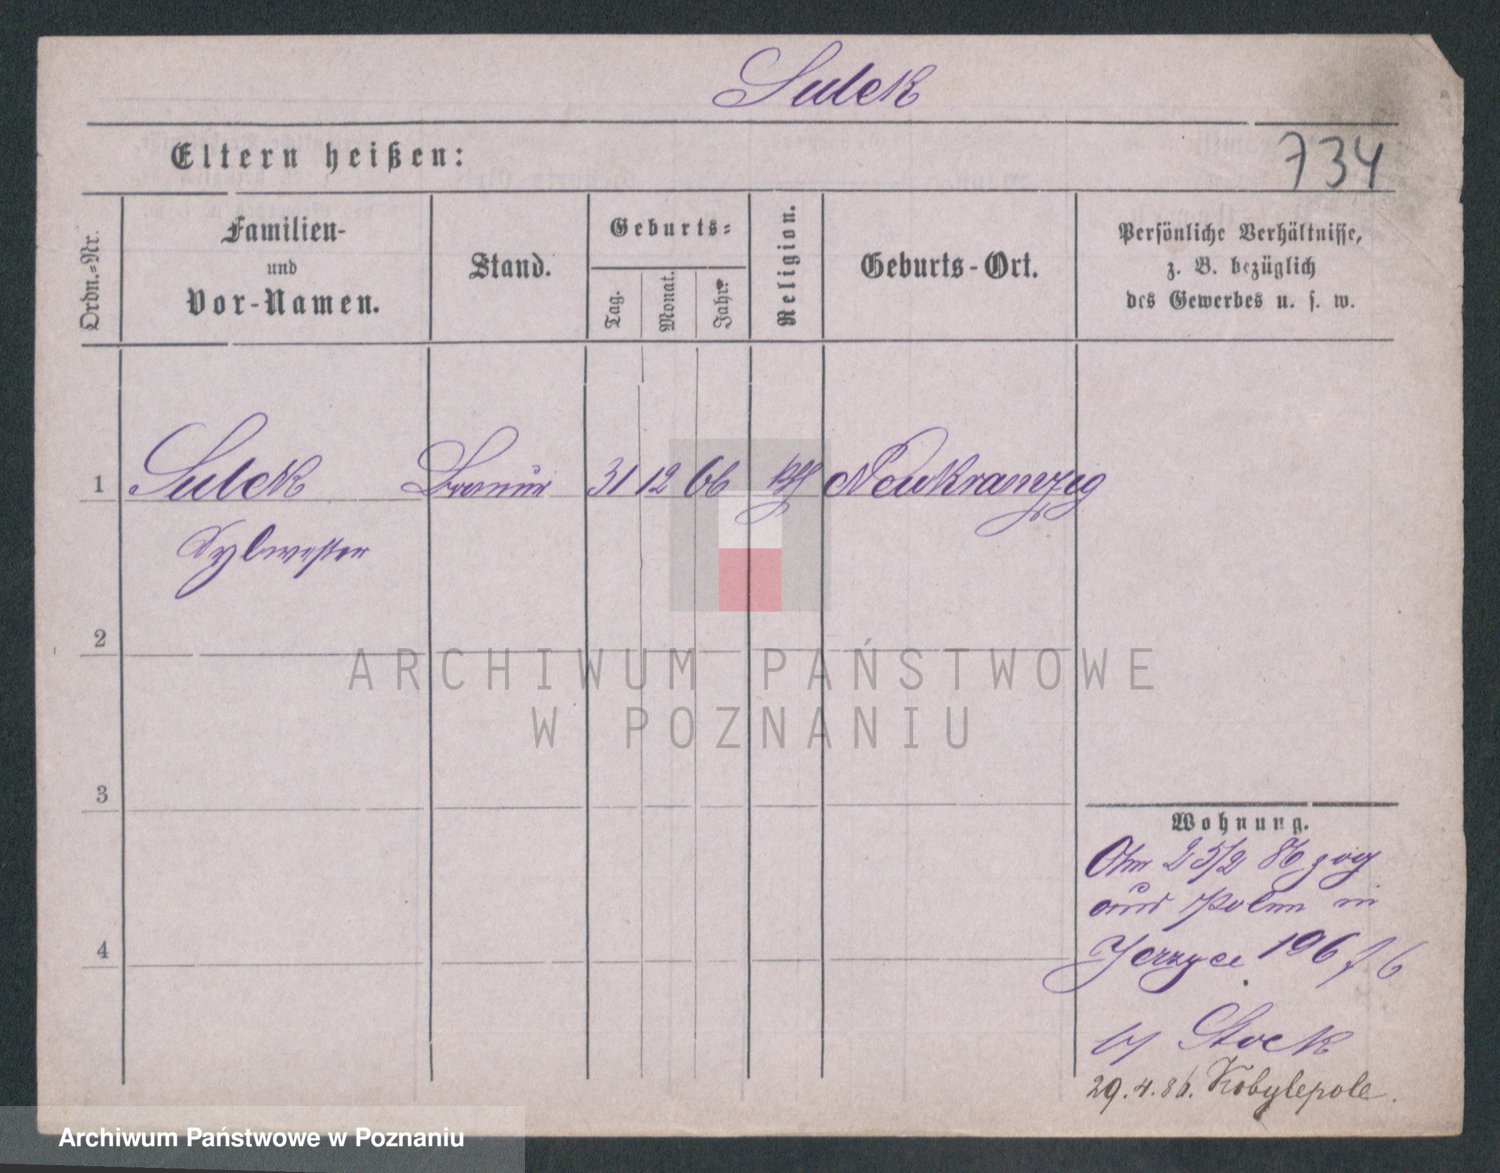 Sulek
734
Eltern heißen:
Ordn.=Nr.
Familien-
und
Vor-Namen.
Stand.
Geburts=
Tag.
Monat.
Jahr.
Religion.
Geburts-Ort.
Persönliche Verhältnisse,
z. B. bezüglich
des Gewerbes u. s. w.
1 Sulek 31 12 66 kth Neukranzig
Sylwester
2
ARCHIWUM PAŃSTWOWE
W POZNANIU
3
Wohnung.
Am 25/2 86 zog
aus Polen in
4
Jerzyce 196 f 6
by Stock
29.4.86. Kobylepole.
Archiwum Państwowe w Poznaniu